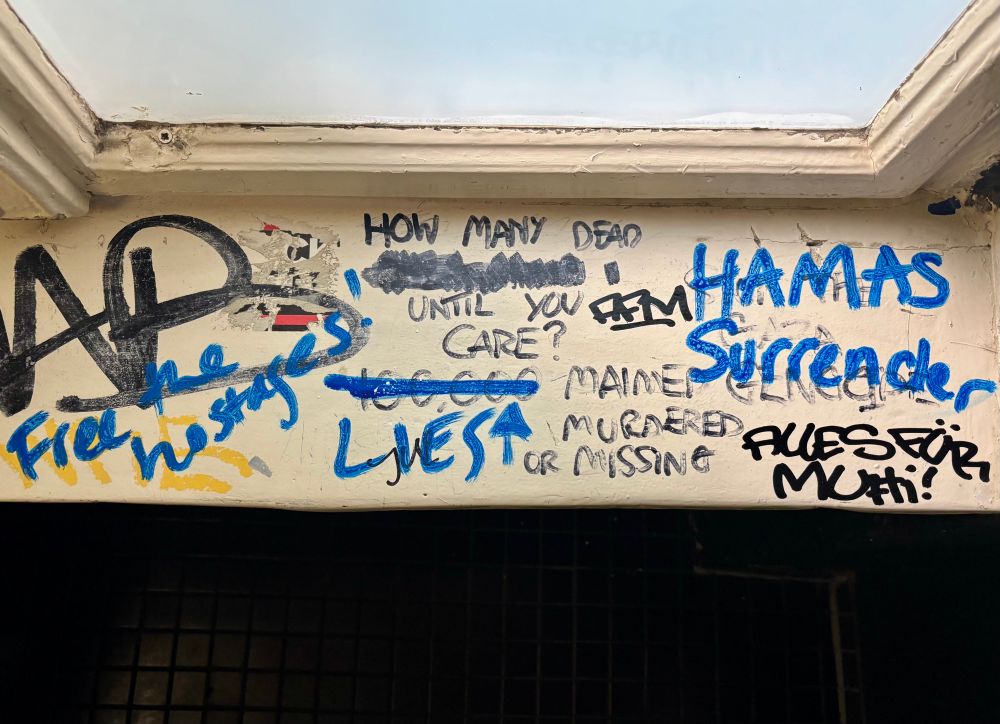 Free the
hostages!
HOW MANY DEAD
UNTIL YOU
CARE?
100,000 MAIMED
MURDERED
OR MISSING
LIES
HAMAS
Surrender
GAZA
ALLES FÜR
MUtti!